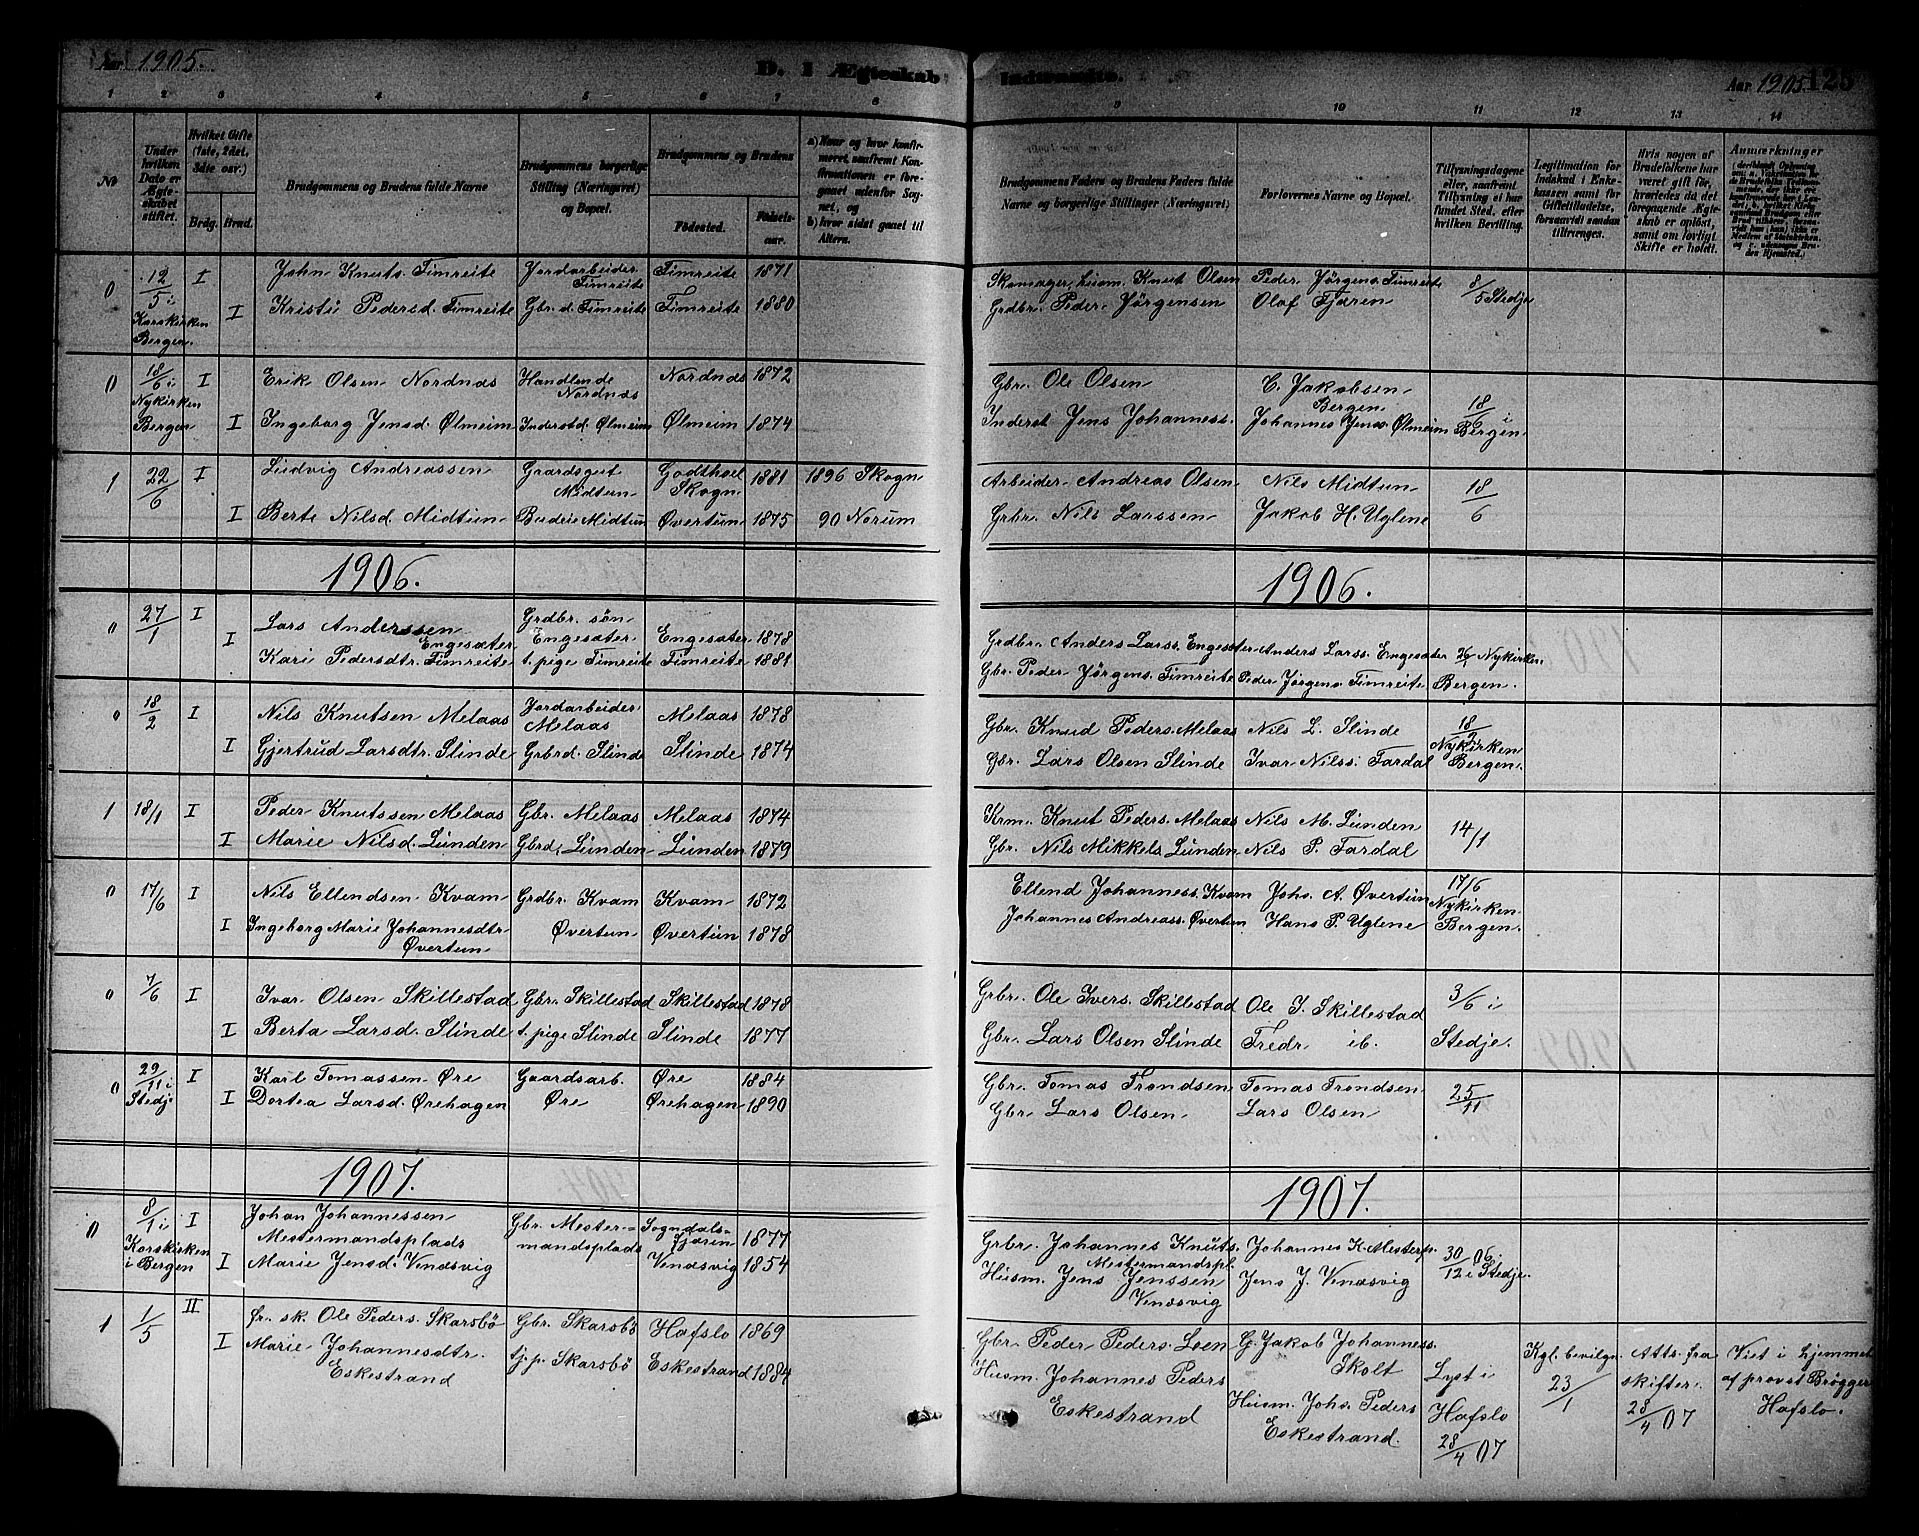 Aar 1905.
D. I Ægteskab
Indtraadte.
Aar 1905
125
1 2 3 4 5 6 7 8 9 10 11 12 13 14
№
Under hvilken Dato er Ægteskabet stiftet.
Hvilket Gifte (1ste, 2det, 3die osv.)
Brdg. Brud.
Brudgommens og Brudens fulde Navne
Brudgommens borgerlige Stilling (Næringsvei) og Bopæl.
Brudgommens og Brudens
Fødested.
Fødselsaar.
a) Naar og hvor konfirmeret, saafremt Konfirmationen er foregaaet udenfor Sognet, og
b) hvor sidst gaaet til Alters.
Brudgommens Faders og Brudens Faders fulde Navne og borgerlige Stillinger (Næringsvei)
Forlovernes Navne og Bopæl.
Tillysningsdagene eller, saafremt Tillysning ei har fundet Sted, efter hvilken Bevilling.
Legitimation for Indskud i Enkekassen samt for Giftetilladelse, forsaavidt saadan tiltrænges.
Hvis nogen af Brudefolkene har været gift før, hvorledes da det foregaaende Ægteskab er opløst, samt om lovligt Skifte er holdt.
Anmærkninger
0 12/5 i Korskirken Bergen. I John Knuts. Timreite Jordarbeider Timreite Timreite 1871 Skomager, husm. Knut Olsen Peder Jörgens. Timreite 8/5 Stedje
I Kristi Pedersd. Timreite Gbr. d. Timreite Timreite 1880 Grdbr. Peder Jörgensen Olaf Fjæren
0 18/6 i Nykirken Bergen I Erik Olsen Nordnæs Handlende Nordnæs Nordnæs 1872 Gbr. Ole Olsen C. Jakobsen Bergen 18/6 i Bergen
I Ingeborg Jensd. Ølmeim Inderstd. Ølmeim Ølmeim 1874 Inderst Jens Johanness. Johannes Jens. Ølmeim
1 22/6 I Ludvig Andreassen Gaardsgut Midtun Godthoel Skogn 1881 1896 Skogn Arbeider Andreas Olsen Nils Midtun 18/6
I Berte Nilsd. Midtun Budeie Midtun Øvertun 1875 90 Norum Grbr. Nils Larssen Jakob H. Uglene
1906. 1906.
0 27/1 I Lars Anderssen Engesæter Grdbr. søn Engesæter Engesæter 1878 Grdbr. Anders Larss. Engesæter Anders Larss. Engesæter 26/1 Nykirken Bergen.
I Kari Pedersdtr. Timreite t. pige Timreite Timreite 1881 Gbr. Peder Jörgens. Timreite Peder Jörgens. Timreite
0 18/2 I Nils Knutsen Melaas Jordarbeider Melaas Melaas 1878 Gbr. Knud Peders. Melaas Nils L. Slinde 18/2 Nykirken Bergen.
I Gjertrud Larsdtr. Slinde Grbrd. Slinde Slinde 1874 Gbr. Lars Olsen Slinde Ivar Nilss. Fardal
1 18/1 I Peder Knutssen Melaas Gbr. Melaas Melaas 1874 Krm. Knut Peders. Melaas Nils M. Lunden 14/1
I Marie Nilsd. Lunden Gbrd. Lunden Lunden 1879 Gbr. Nils Mikkels. Lunden Nils P. Fardal
0 17/6 I Nils Ellendsen Kvam Grdbr. Kvam Kvam 1872 Ellend Johanness. Kvam Johs. A. Øvertun 17/6 Nykirken Bergen.
I Ingeborg Marie Johannesdtr Øvertun Øvertun Øvertun 1878 Johannes Andreass. Øvertun Hans P. Uglene
0 7/6 I Ivar Olsen Skillestad Gbr. Skillestad Skillestad 1878 Grbr. Ole Ivers. Skillestad Ole I. Skillestad 3/6 i Stedje.
I Berta Larsd. Slinde t. pige Slinde Slinde 1877 Gbr. Lars Olsen Slinde Fredr ib.
0 29/11 i Stedje I Karl Tomassen Øre Gaardsarb. Øre Øre 1884 Gbr. Tomas Trondsen Tomas Trondsen 25/11
I Dortea Larsd. Ørehagen Ørehagen 1890 Gbr. Lars Olsen Lars Olsen
1907. 1907.
0 8/1 i Korskirken i Bergen I Johan Johannessen Mestermandsplads Gbr. Mestermandsplads Sogndalsfjæren 1877 Grbr. Johannes Knuts. Mestermandspl. Johannes K. Mesterp. 30/12 06 i Stedje.
I Marie Jensd. Vendsvig Vendsvig 1854 Husm. Jens Jenssen Vendsvig Jens J. Vendsvig
1 1/5 II fr. sk. Ole Peders. Skarsbö Gbr. Skarsbö Hafslo 1869 Gbr. Peder Peders. Loen G. Jakob Johanness. Skolt Lyst i Hafslo 28/4 07 Kgl. bevilgn. 23/1 Atts. fra skifter. 28/4 07 Viet i hjemmet af provst Brögger Hafslo.
I Marie Johannesdtr. Eskestrand tj. p. Skarsbö Eskestrand 1884 Husm. Johannes Peders Eskestrand Husm. Johs. Peders Eskestrand.